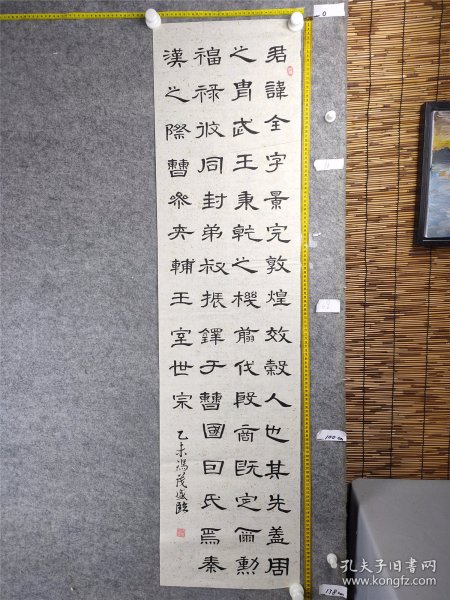 君諱全字景完敦煌效穀人也其先蓋周
之胄武王秉乾之機翦伐殷商既定爾勳
福祿攸同封弟叔振鐸于曹國因氏焉秦
漢之際曹參夾輔王室世宗
乙未馮茂盛臨
0
100 cm
138 cm
孔夫子旧书网
www.kongfz.com